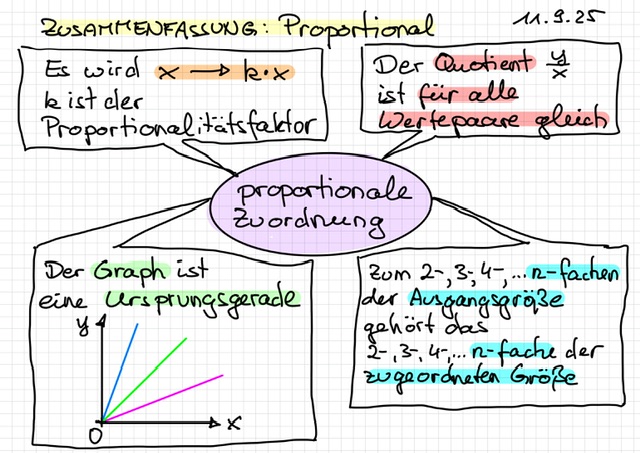 ZUSAMMENFASSUNG: Proportional
11.9.25
Es wird x → k·x
k ist der
Proportionalitätsfaktor
Der Quotient y/x
ist für alle
Wertepaare gleich
proportionale
Zuordnung
Der Graph ist
eine Ursprungsgerade
y
x
0
Zum 2-, 3-, 4-, ... n-fachen
der Ausgangsgröße
gehört das
2-, 3-, 4-, ... n-fache der
zugeordneten Größe